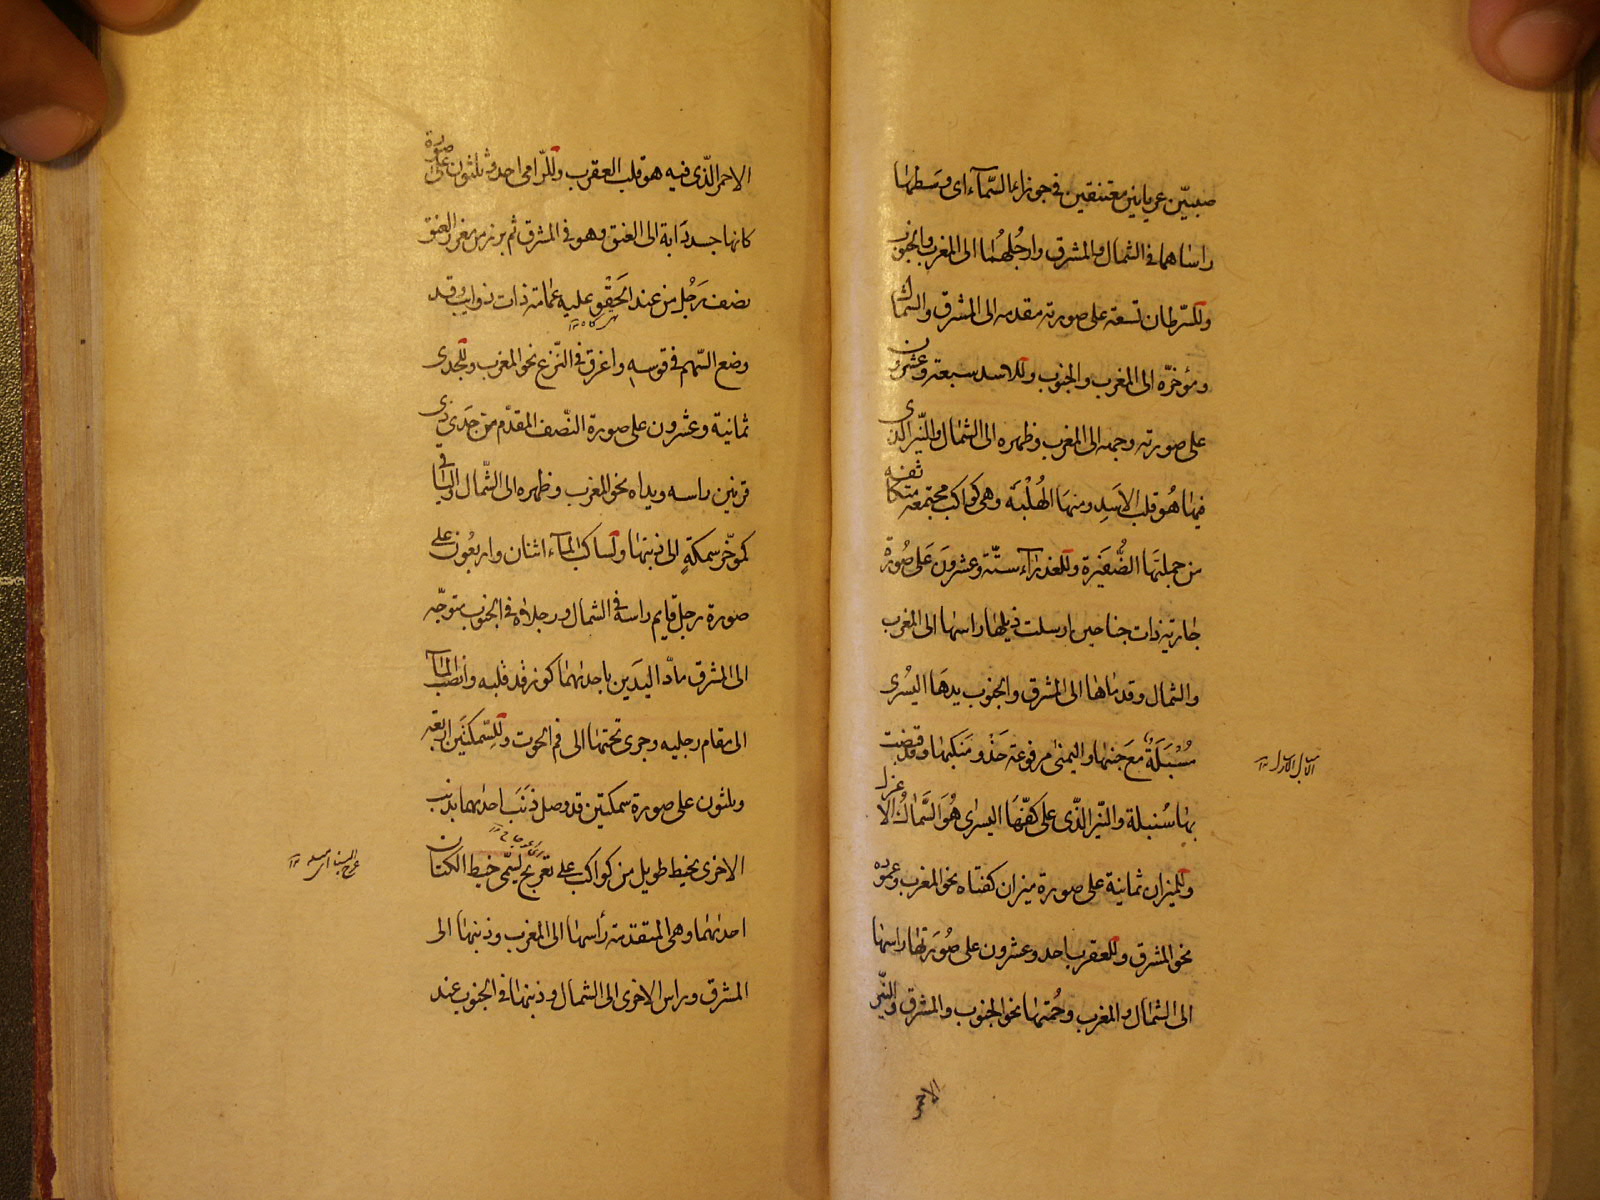 صبيّين عريانين معتنقين في جوزاء السّمآء اى وسطها
راساهما في الشمال والمشرق وارجُلهُما الى المغرب والجنوب
وللسّرطان تسعة على صورته مقدمه الى المشرق والشمال
ومؤخرّه الى المغرب والجنوب وللاسد سبعة وعشرون
على صورته وجهه الى المغرب وظهره الى الشمال والنّير الذى
فيها هُو قلب الاَسَدِ ومنها الهُلْبَة وهى كواكب مجتمعة متكاثفه
من جملتَها الضُّفَيْرة وللعذرآء ستّة وعشرونَ عَلى صُورة
جارية ذات جناحين ارسلت ذيلها راسها الى المغرب
والشمال وقدماها الى المشرق والجنوب يدهَا اليُسْرى
مُسْبَلَةٌ مَعَ جنبها واليمنى مرفوعة حَذْو مَنكبها وقد قبضت
بها سُنبلة والنّير الذّى على كفّهَا اليسرى هُوَ السَّمَاكُ الاعزل
وللميزان ثمانية على صورة ميزان كفتاه نحو المغرب وعموده
نحو المشرق وللعقرب احد وعشرون على صُورَتها راسها
الى الشمال والمغرب وحُمتها نحو الجنوب والمشرق والنّير
الاحمر
الاحمر الذّى فيه هو قلب العقرب وللّرامى احد وثلثون على صورة
كانها جسد دَابة الى العنق وهو في المشرق ثم برز من مغرز العنق
نصف رَجُل من عند الحَقْو عليه عمامة ذات ذوايب وقد
وضع السّهم في قوسهِ واغرق في النّزع نحو المغرب وللجدى
ثمانية وعشرون على صورة النّصف المقدّم من جَدى ذى
قرنين راسه ويداه نحو المغرب وظهره الى الشّمال والباقى
كموخّر سمكةٍ الى ذنبتها ولساكب المآء اثنان واربعُون على
صورة رجل قايم راسه في الشمال ورجلاه في الجنوب متوجّه
الى المشرق مادّ اليدَين باحديهما كوز قد قلبه وانصَبّ المآء
الى مقام رجليه وجرى تحتها الى فم الحوت وللِسّمكتَين اربعَة
وثلثون على صورة سمكتين قد وصل ذَنَب احديهما بذنب
الاخرى بخيط طويل من كواكب على تعريج يُسمّى خيط الكتان
احديهما وهى المتقدّمة رأسها الى المغرب وذنبها الى
المشرق وراس الاخرى الى الشمال وذنبها في الجنوب عند